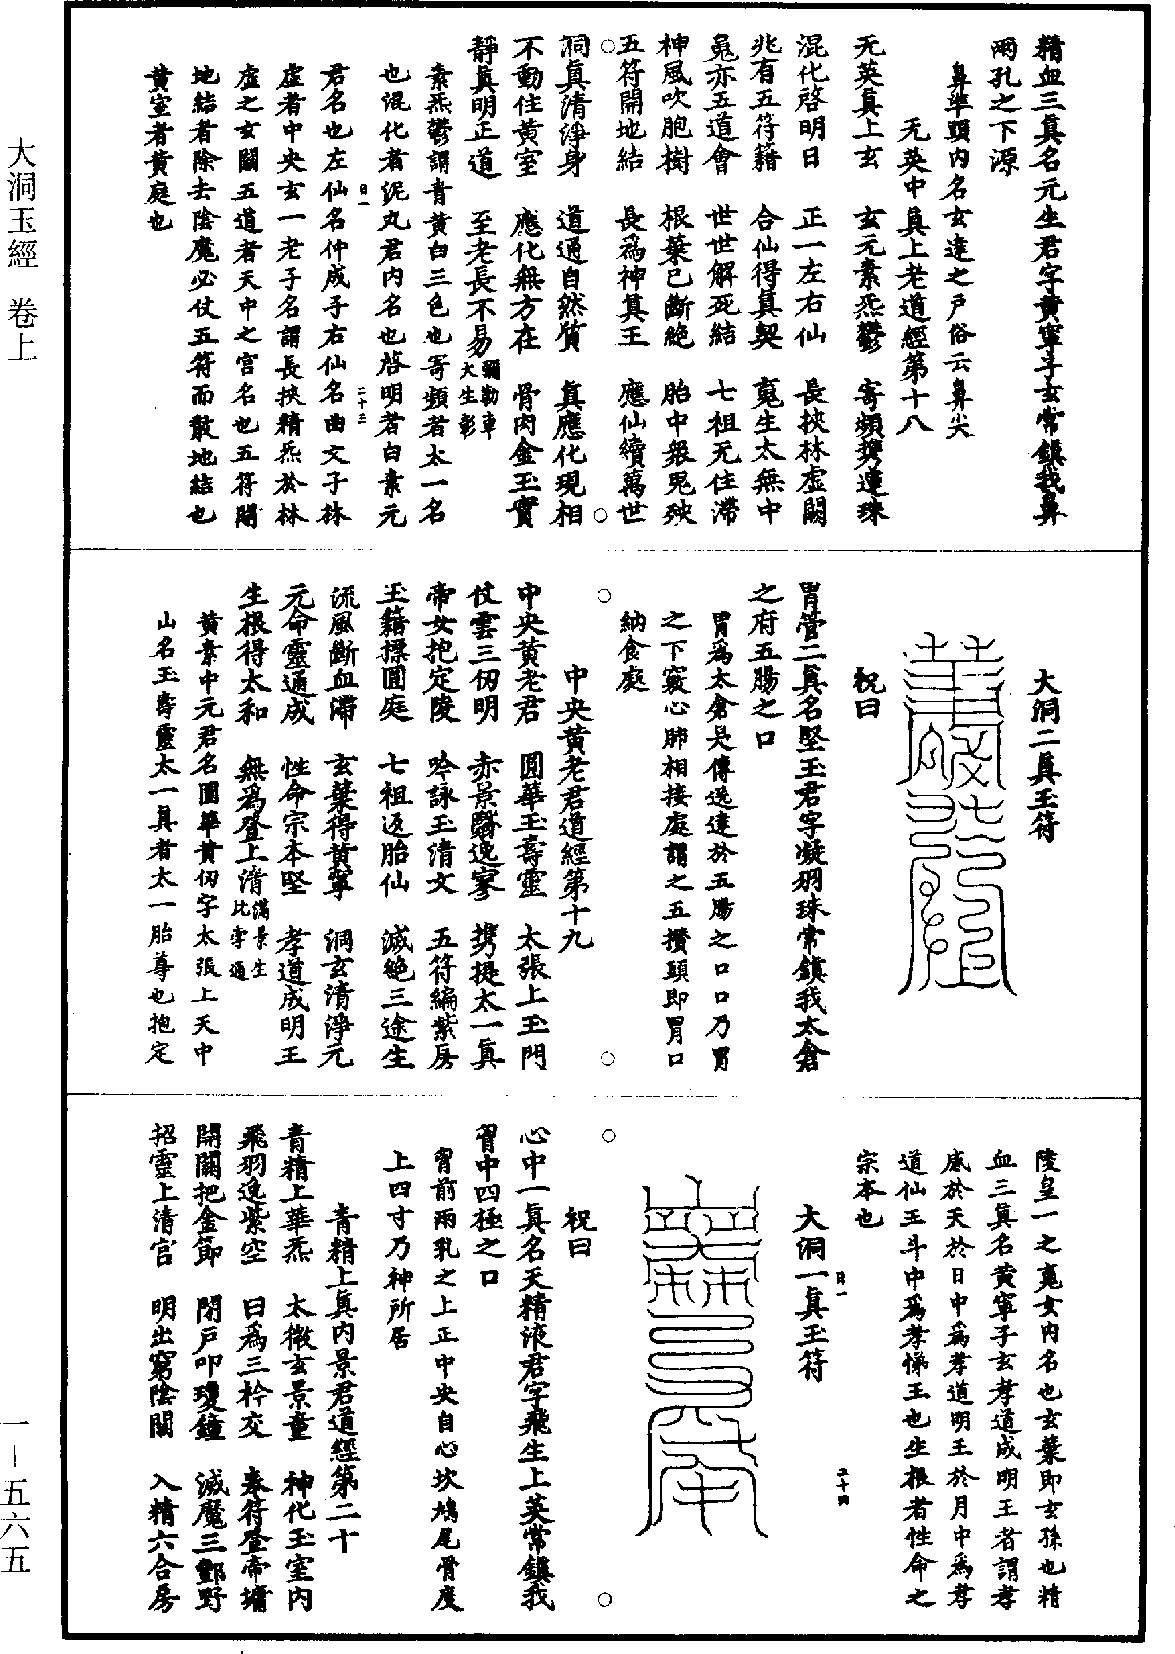 大洞玉經　卷上
一—五六五
精血三真名元生君字黃寧斗玄常鎮我鼻
兩孔之下源
鼻準頭內名玄達之戶俗云鼻尖
无英中真上老道經第十八
无英真上玄　玄元素炁鬱　寄頻攜蓮珠
混化啓明日　正一左右仙　長挾林虛闕
兆有五符籍　合仙得真契　冤生太無中
冤亦五道會　世世解死結　七祖无住滯
神風吹胞樹　根葉已斷絕　胎中衆鬼殃
五符開地結　長爲神真王　應仙續萬世
洞真清淨身　道通自然質　真應化現相
不動住黃室　應化無方在　骨肉金玉實
靜真明正道　至老長不易彌勒車大生彰
素炁鬱謂青黃白三色也寄頻者太一名
也混化者泥丸君內名也啓明者白素元
君名也左仙名仲成子右仙名曲文子林
虛者中央玄一老子名謂長挾精炁於林
虛之玄關五道者天中之宮名也五符開
地結者除去陰魔必仗五符而散地結也
黃室者黃庭也
大洞二真玉符
祝曰
胃管二真名堅玉君字凝羽珠常鎮我太倉
之府五腸之口
胃爲太倉是傳送達於五腸之口口乃胃
之下竅心肺相接處謂之五攢頭即胃口
納食處
中央黃老君道經第十九
中央黃老君　圓華玉壽靈　太張上玉門
仗雲三仞明　赤景驂逸寥　攜提太一真
帝女抱定陵　吟詠玉清文　五符編紫房
玉籍操圓庭　七祖返胎仙　滅絕三途生
流風斷血滯　玄葉得黃寧　洞玄清淨元
元命靈通成　性命宗本堅　孝道成明王
生根得太和　無爲登上清滿景生比李通
黃素中元君名圓華黃仞字太張上天中
山名玉壽靈太一真者太一胎尊也抱定
陵皇一之冤女內名也玄葉即玄孫也精
血三真名黃寧子玄孝道成明王者謂孝
感於天於日中爲孝道明王於月中爲孝
道仙王斗中爲孝悌王也生根者性命之
宗本也
大洞一真玉符
祝曰
心中一真名天精液君字飛生上英常鎮我
胷中四極之口
胷前兩乳之上正中央自心坎鳩尾骨度
上四寸乃神所居
青精上真內景君道經第二十
青精上華炁　太微玄景童　神化玉室內
飛羽逸紫空　曰爲三衿交　奉符登帝墉
開關把金節　閉戶叩瓊鐘　滅魔三酆野
招靈上清宮　明出窮陰關　入精六合房